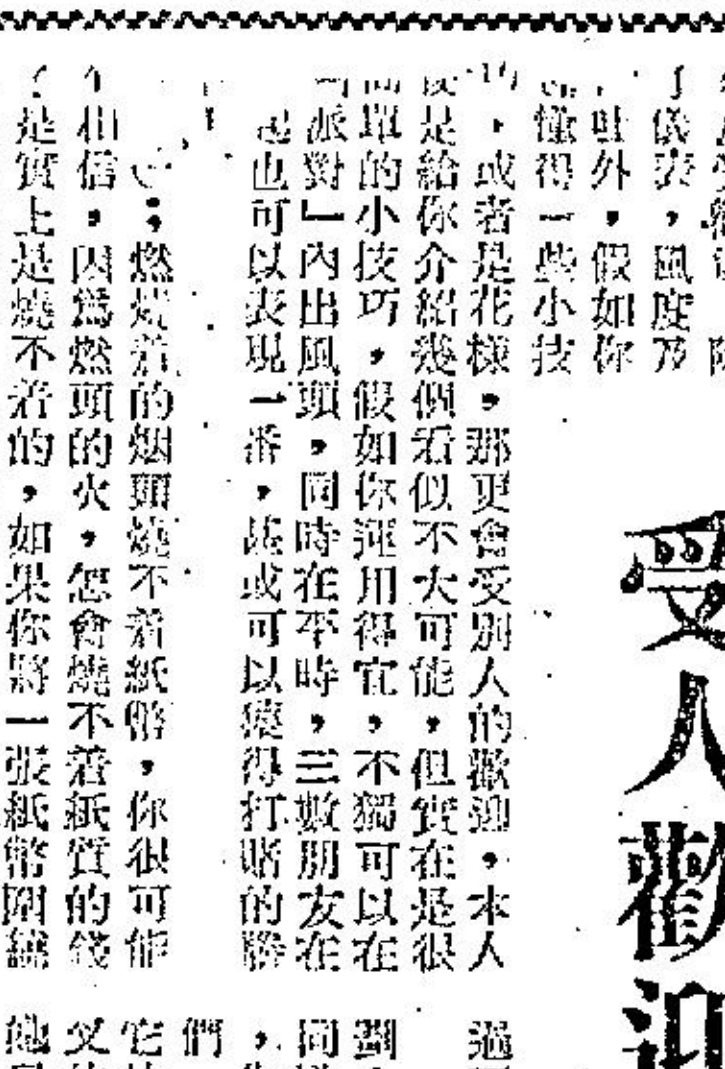 受人歡迎
了儀表,風度及
吐外,假如你
懂得一些小技
,或者是花樣,那更會受別人的歡迎。本人
是給你介紹幾個看似不大可能,但實在是很
單的小技巧,假如你運用得宜,不獨可以在
「派對」內出風頭,同時在平時,三數朋友在
起也可以表現一番,甚或可以獲得打賭的勝
:燃着的烟頭燒不着紙幣,你很可能
不相信,因爲燃頭的火,怎會燒不着紙質的錢
是實上是燒不着的,如果你將一張紙幣圍繞
過
劃
同
們
它
又
他